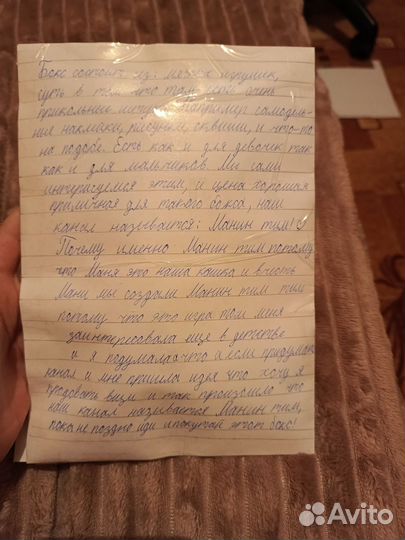 Бокс состоит из: мягких игрушек,
суть в том что там есть очень
прикольные штучки например самодель-
ные наклейки, рисунки, сквиши, и что-то
на подобе. Есть как и для девочек так
как и для мальчиков. Мы сами
интересуемся этим, и цена хорошая
приличная для такого бокса, наш
канал называется: Манин тим!
Почему именно Манин тим потому
что Маня это наша кошка и в честь
Мани мы создали Манин тим тим
потому что это игра том меня
заинтересовала ещё в детстве
и я подумала а что а если придумать
канал и мне пришла идея что хочу я
продовать вещи и так произошло что
наш канал называется Манин тим,
пока не поздно иди и покупай этот бокс!
Avito